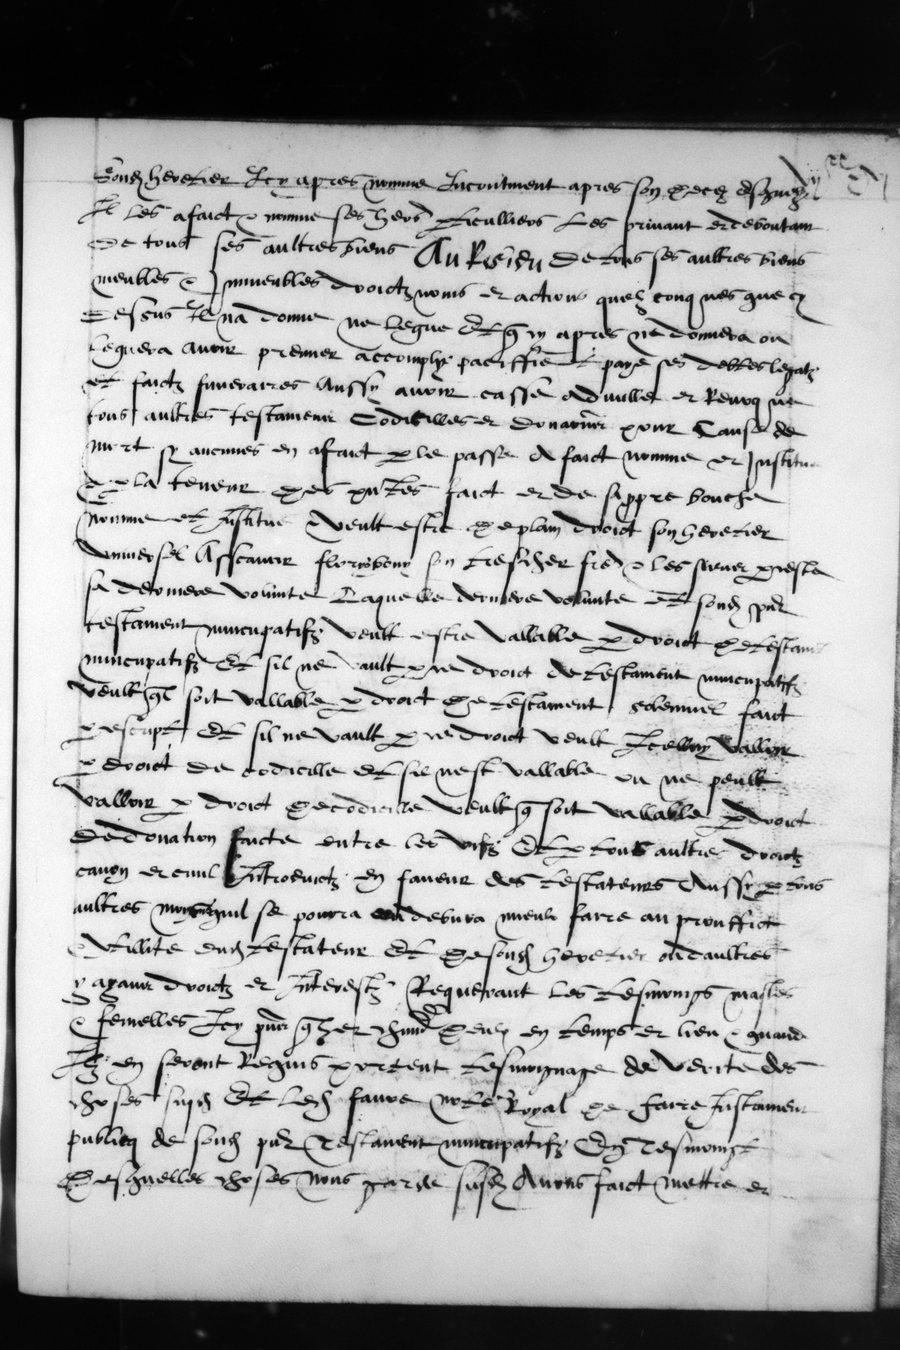 Sond heretier Icy apres nomme Incontinent apres son deces desquelz
Il les a faict & nomme ses hers particulliers les privant et deboutant
De tous ses aultres biens Au Residu De tous ses aultres biens
meubles & Immeubles droictz noms et actions quelzconques que cy
Dessus Il na donne ne legue Et q cy apres ne donnera ou
leguera avoir premier accomply paciffie et paye ses debtes legatz
et faictz funeraires Aussy avoir casse adnulle et Revoque
tous aultres testamens Codicilles et donations pour Cause de
mort sy aucunes en a faict p le passe A faict nomme et Institue
p la teneur des pntes faict et de sa ppre bouche
nomme et Institue veult estre de plain droict son heretier
universel Asscavoir son trescher frere & les siens p ceste
sa derniere volunte Laquelle derniere volunte Et sond pnt
testament nuncupatifz veult estre vallable p droict de testament
nuncupatifz Et sil ne vault p ce droict de testament nuncupatifz
veult ql soit vallable p droict de testament solemnel faict
p escript Et sil ne vault p ce droict veult Icelluy valloir
p droict de codicille et sil nest vallable ou ne peult
valloir p droict de codicille veult q soit vallable p droict
De donation faicte entre les vifz Et p tous aultres droictz
canon et civil Introductz en faveur des testateurs Aussy p tous
aultres moyens quil se pourra ou debvra mieulx faire au prouffict
& utillite dud testateur Et de sond heretier ou daultres
y ayant droictz et Interestz Requerant les tesmoings masles
& femelles Icy pns en temps et lieu & quand
Ilz en seront Requis portent tesmoignage de verite des
choses susd Et led favre note Royal de faire Instrument
publicq de sond pnt Testament nuncupatifz En Tesmoing
Desquelles choses nous garde susd Avons faict mettre et